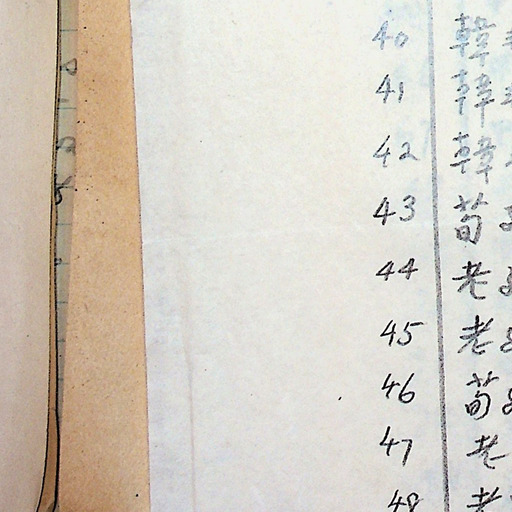 40 韓
41 韓
42 韓
43 荀
44 老
45 老
46 荀
47 老
48 老